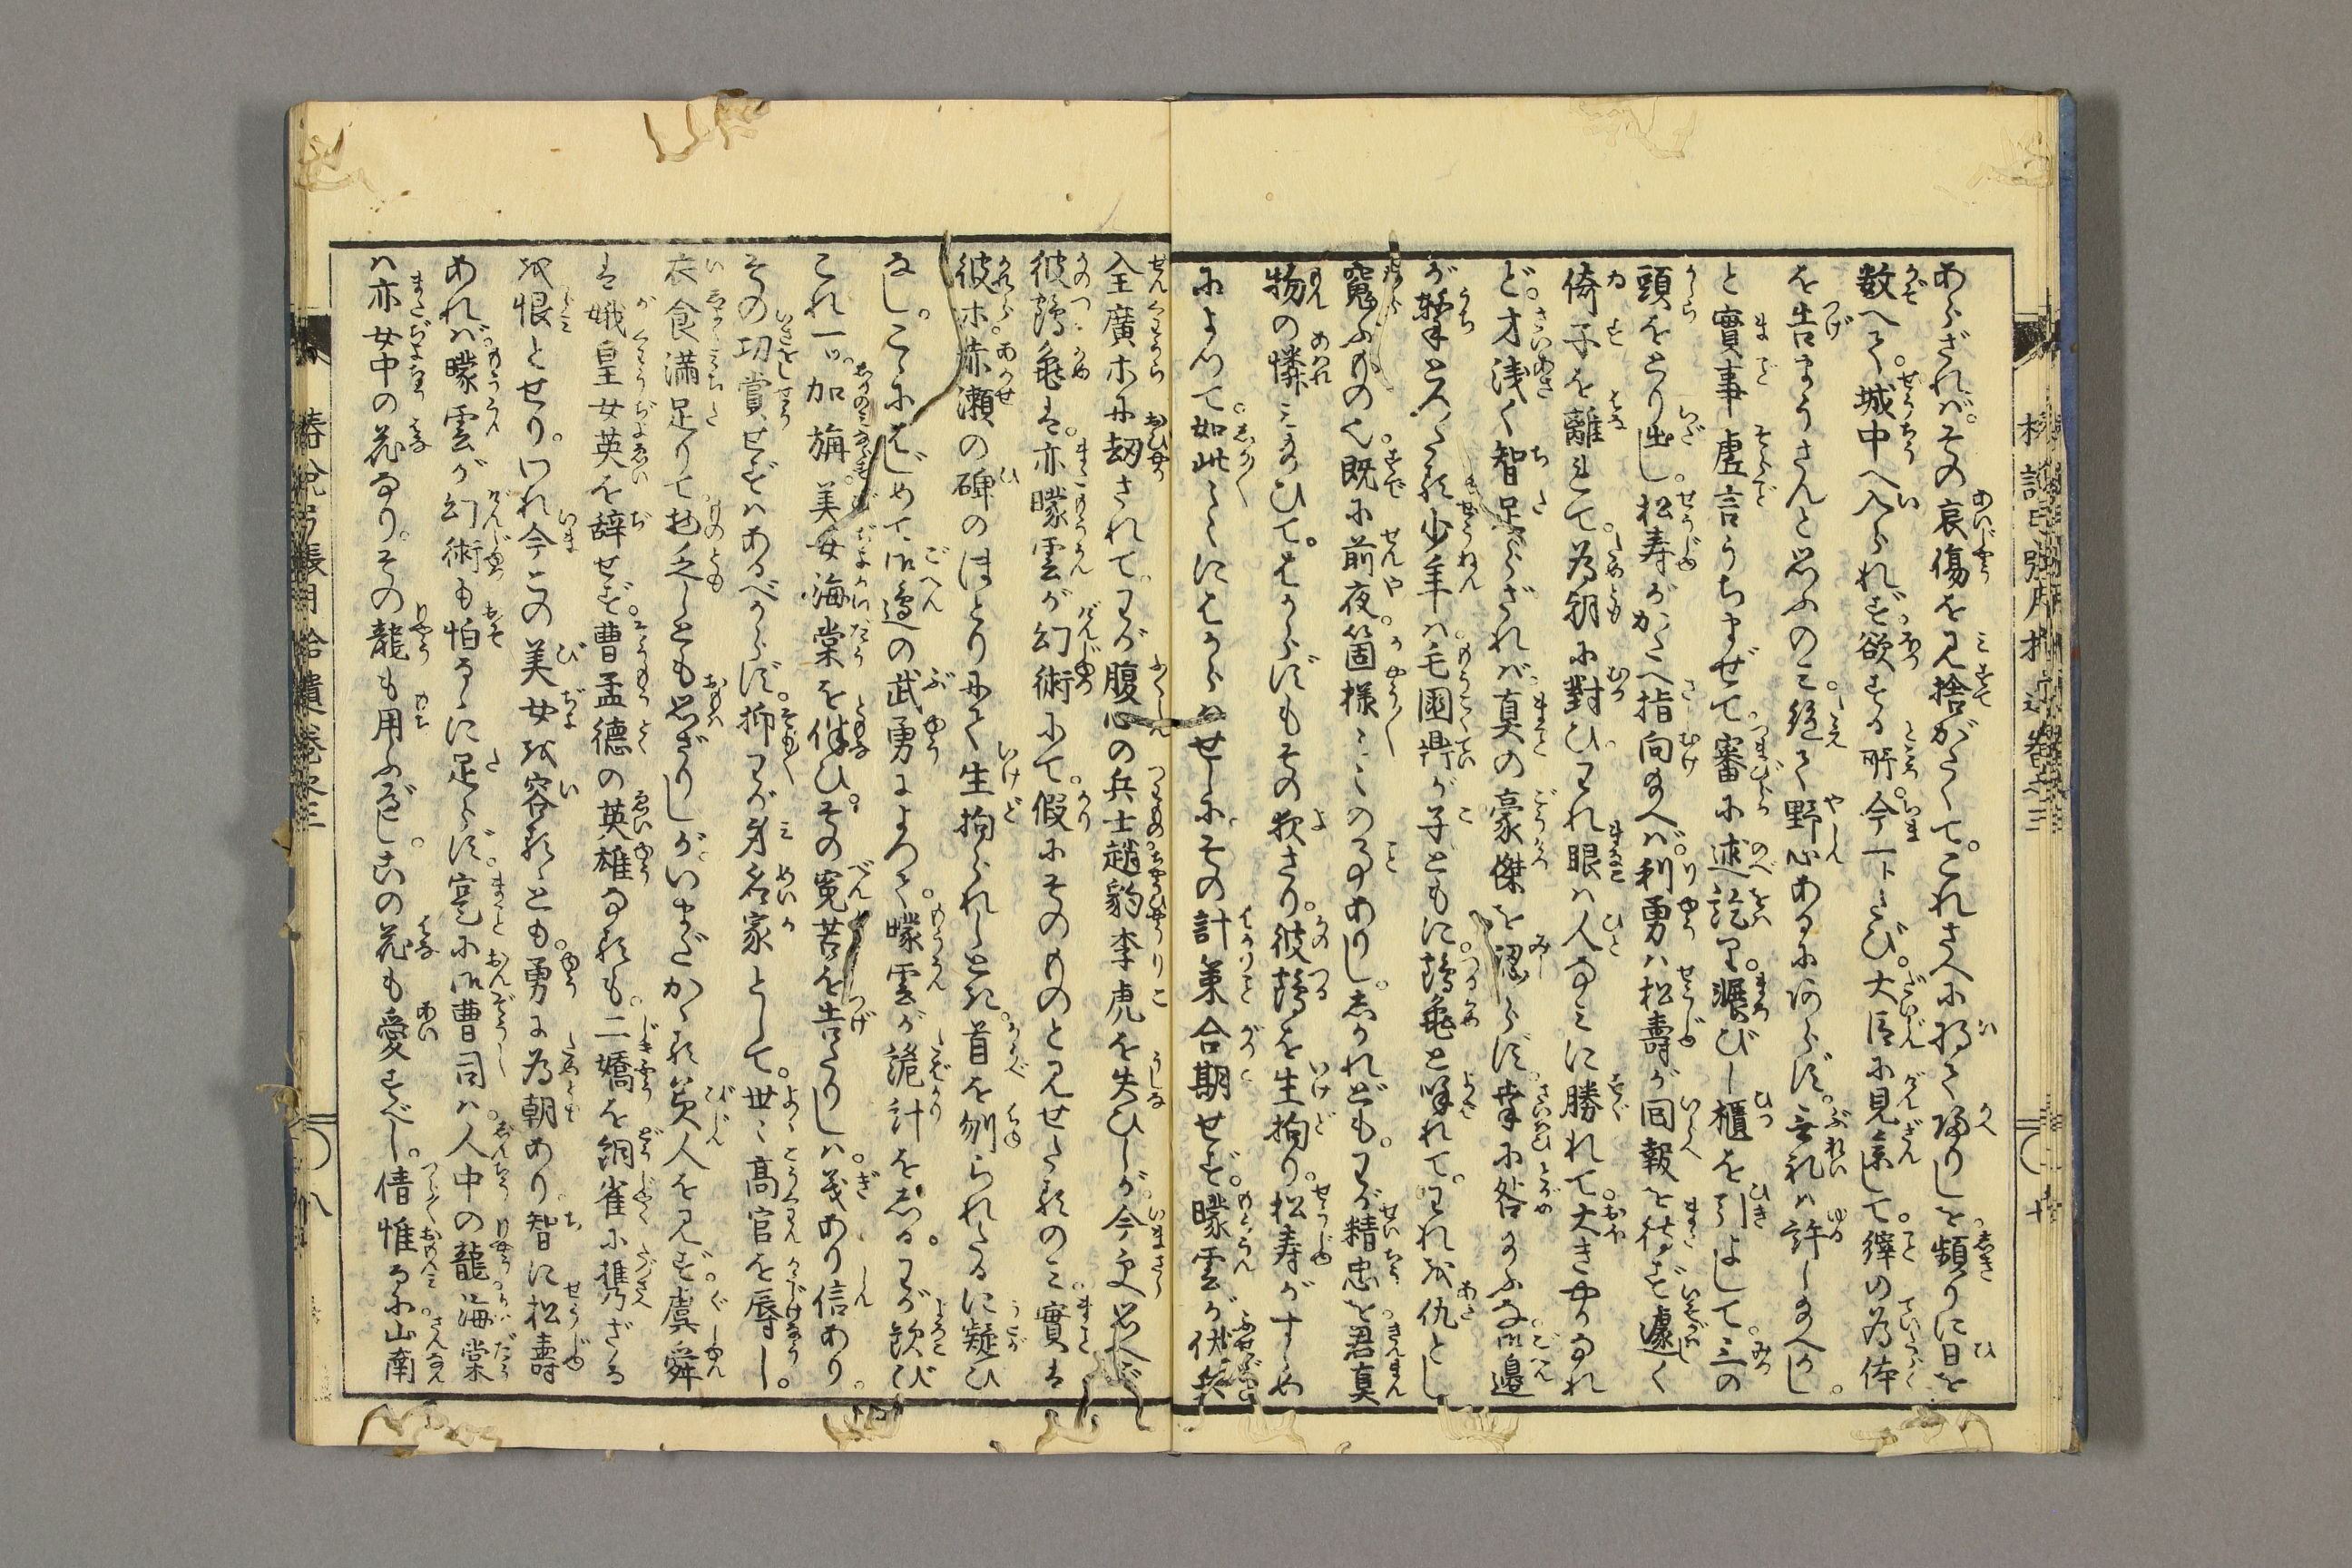 あらざれば。その哀傷を見捨がたくて。これさへに将て還りしを頻りに日を
数へて。城中へ入られず。欲する所。今一トたび。大臣に見参して。縡の為体
を告まうさんと思ふのみ。絶て野心あるにあらず。無礼は許し給へかし。
と實事虚言うちまぜて。審に述訖り。滾びし櫃を引よして。三の
頭をとり出し。松寿がかたへ指向給へば。利勇は松壽が回報を待ず。遽く
倚子を離れて。為朝に對ひ。われ眼は人なみに勝れて。大きやかなれ
ど。才浅く智足らざれば。真の豪傑を認らず。幸に咎給ふな。御邊
が撃とつたる少年は。毛國鼎が子ともに。鶴亀と呼れて。われを仇とし
窺ふもの也。既に前夜。箇様々々の事ありし。しかれども。わが精忠を。君真
物の憐みたまひて。はからずもその救さり。彼鶴を生拘り。松寿がすゝめ
によつて。如此々々にはからはせしに。その計策合期せず。曚雲が伏兵
全廣ホに劫されて。わが腹心の兵士。趙豹李虎を失ひしが。今更思へば
彼鶴亀は。亦曚雲が幻術にて。假にそのものと見せたるのみ。實は
彼ホ。赤瀬の碑のほとりにて。生拘られしとき。首を刎られたるに疑ひ
なし。こゝにはじめて。御邊の武勇によつて。曚雲が詭計をしる。わが歓び
これ一ッ。加旃。美女海棠を伴ひ。その冤苦を告たりしは。義あり信あり。
その功賞せずはあるべからず。抑わが身名家として。世々高官を辱し。
衣食満足りて。物乏しとも思ざりしが。いまだかゝる美人を見ず。虞舜
は娥皇女英を辞せず。曹孟徳の英雄なるも。二嬌を銅雀に携ざる
を恨とせり。われ今この美女を容るとも。勇に為朝あり。智に松壽
あれば。曚雲が幻術も怕るゝに足らず。寔に御曹司は。人中の龍。海棠
は亦女中の花なり。その龍も用ふべし。この花も愛すべし。倩惟るに。山南
椿説弓張月拾遺巻之三
八